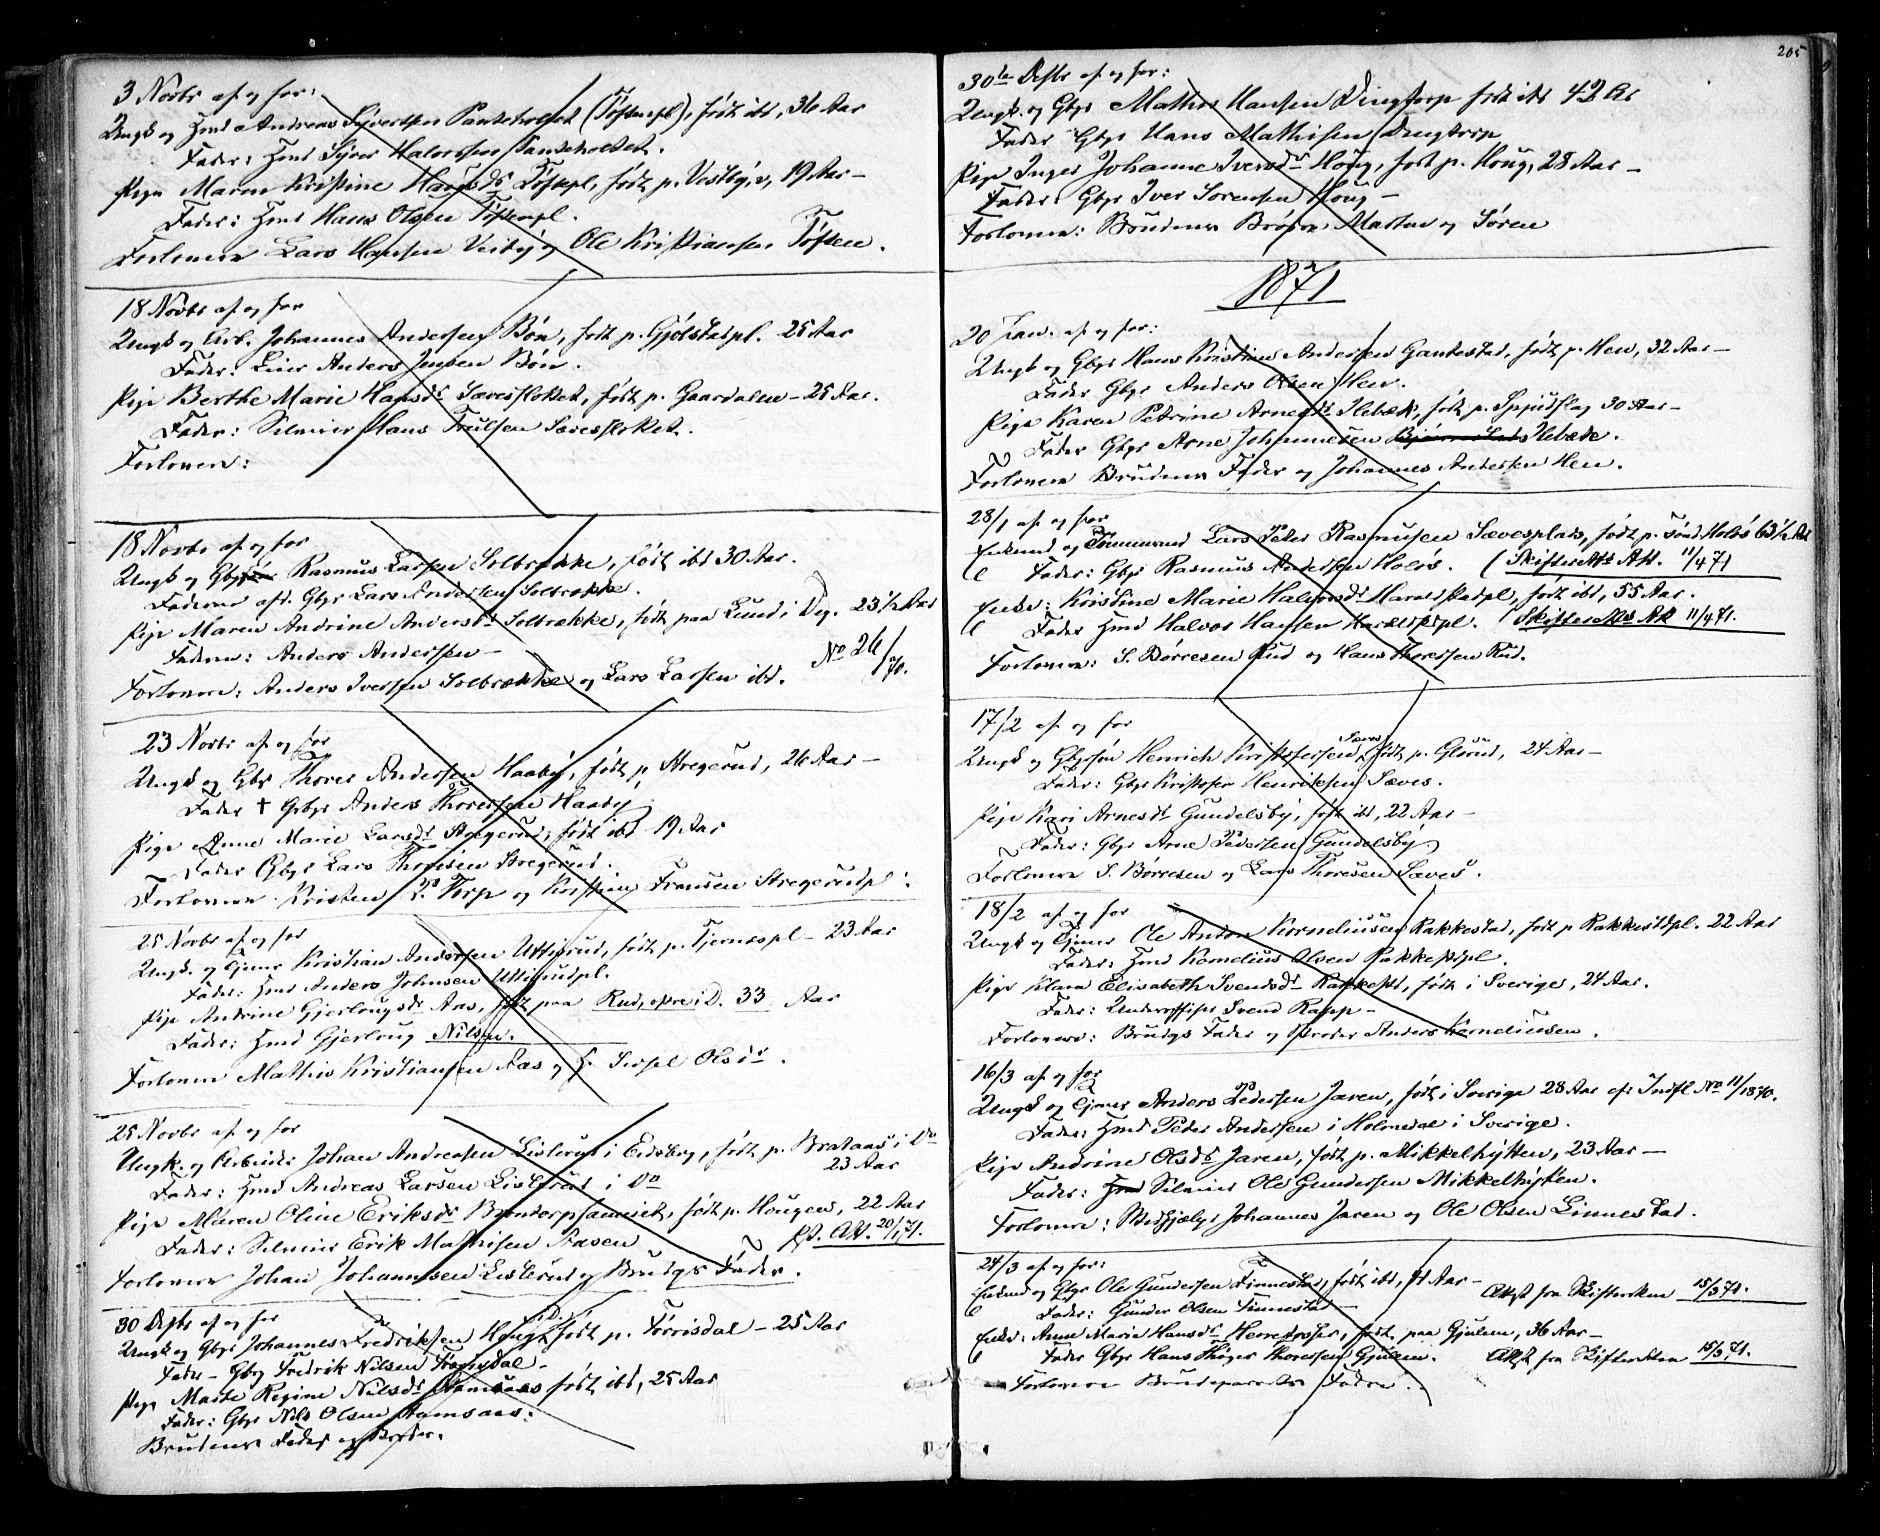 3 Novbr af og for:
Ungk og Hmd Andreas Syversen Panteholtet (Töstenpl), født ibd, 36 Aar
Fader: Hmd Syver Halvorsen Panteholtet.
Pige Maren Kristine Hansdr Töstenpl, født p. Vestby, v, 19 Aar –
Fader: Hmd Hans Olsen Töstenpl.
Forlovere Lars Hansen Vestby og Ole Kristiansen Tösten.
18 Novbr af og for
Ungk og Arb. Johannes Andersen Bön, født p. Gjölstadpl. 25 Aar
Fader: Leier Anders Jensen Bön.
Pige Berthe Marie Hansdr Sævesflöket, født p. Gaardalen – 25 Aar.
Fader: Selveier Hans Truelsen Sævesfloket.
Forlovere:
18 Novbr af og for
Ungk og Rasmus Larsen Solbrække, født ibd 30 Aar.
Faderen afd. Gbgr Lars Andersen Solbrække.
Pige Maren Andrine Andersdr Solbrække, født paa Lund i Deg. 23 1/2 Aar
Faderen: Anders Andersen –
No 26/70.
Forlovere: Anders Iversen Solbrække og Lars Larsen ibd.
23 Novbr af og for
Ungk og Gbr Thorer Andersen Haaby, født p Stregerud, 26 Aar –
Fader † Gbgr Anders Thoresen Haaby
Pige Anne Marie Larsdr Stregerud, født ibd 19 Aar
Fader Gbgr Lars Thoresen Stregerud.
Forlovere Kristen P. Torp og Kristian Fransen Stregerudpl.
25 Novbr af og for
Ungk. og Tjener Kristian Andersen Uttgrud, født p. Tjernæspl – 23 Aar
Fader: Hmd Anders Johnsen Uttigrudpl.
Pige Andrine Gjerlougsdr Aas, født paa Rud, øvre i D. 33 Aar
Fader: Hmd Gjerloug Nilsen.
Forlovere Mathis Kristiansen Aas og Olsdr.
25 Novbr af og for
Ungk. og Arbeids: Johan Andreasen Lislerud i Eidsberg, født p. Brataas i Do
23 Aar
Fader: Hmd Andreas Larsen Lislerud i Do
Pige Maren Oline Eriksdr Brøndorpsameiet, født p. Hougen, 22 Aar
Fader: Selveier Erik Mathisen Aasen Att. 20/1 71.
Forlovere Johan Johannesen Lislerud og Brudgs Fader.
30 Desbr af og for
Ungk og Gbgr Johannes Fredriksen Houg, født p. Torrisdal – 25 Aar
Fader – Gbg Fredrik Nilsen
Pige Marte Regine Nilsdr Ramsaas født ibd, 25 Aar
Fader: Gbgr Nils Olsen Ramsaas.
Brudens Fader og Broder.
205
30te Desbr af og for:
Ungk. og Gbgr Mathis Hansen Dingtorp født ibd 42 Ar
Fader Gbgr Hans Mathisen Dingtorp
Pige Inger Johanne Iversdr Houg, født p. Houg, 28 Aar –
Fader: Gbgr Iver Sörensen Houg –
Forlovere: Brudens Brödre Martin og Sören
1871
20 Jan. af og for:
Ungk og Gbgr Hans Kristian Andersen Gantestad, født p. Hen, 32 Aar –
Fader Gbgr Anders Olsen Hen.
Pige Karen Petrine Arnesdr Slebæk, født p. Spjudslag 30 Aar –
Fader Gbgr Arne Johannesen Slebæk.
Forlovere Brudens Fader og Johannes Andersen Hen.
28/1 af og for
Enkemd og Tömmermd Lars Peter Rasmusen Sævesplads, født p. Holös 63 1/2 Aar
Fader: Gbgr Rasmus Andersen Holös. (Skifte Att. 11/4 71
Enke: Kristine Marie Halvorsdr Haraldstadpl, født ibd, 55 Aar.
Fader Hmd Halvor Hansen Haraldstpl. (Skifte 11/4 71.
Forlovere: S. Börresen Rud og Hans Thoresen Rud.
17/2 af og for
Ungk og Gbgsön Henrich Kristofersen Sæves, født p. Glörud, 24 Aar –
Fader: Gbgr Kristofer Henriksen Sæves.
Pige Kari Arnesdr Gundelsby, født ibd, 22 Aar –
Fader: Gbgr Arne Pedersen Gundelsby
Forlovere S. Börresen og Lars Thoresen Sæves.
18/2 af og for
Ungk og Tjener Ole Anton Korneliusen Rakkestad, født p Rakkestdpl. 22 Aar
Fader: Hmd Kornelius Olsen Rakkestpl.
Pige Klara Elisabeth Svendsdr Rakkest, født i Sverige, 24 Aar.
Fader: Underofficer Svend Rapp –
Forlovere: Brudgs Fader og Broder Anders Korneliusen.
16/3 af og for
Ungk og Tjener Anders Pedersen Jaren, født i Sverige 28 Aar ef: Indfl No 11/1870.
Fader: Hmd Peder Andersen i Holmedal i Sverige.
Pige Andrine Olsdr Jaren, født p. Mikkelhytten, 23 Aar –
Fader: Selveier Ole Gundersen Mikkelhytten.
Forlovere: Medhjælpr Johannes Jaren og Ole Olsen Linnestad.
24/3 af og for:
Enkemd og Gbgr Ole Gundersen Finnestad, født ibd, 41 Aar – Attest fra Skifteretten 15/3 71.
Fader: Gunder Olsen Finnestad –
Enke: Anne Marie Hansdr født paa Gjulem, 36 Aar –
Fader Gbgr Hans Höger Thoresen Gjulem. Attst fra Skifteretten 15/3 71.
Forlovere Brudeparrets Fædre.